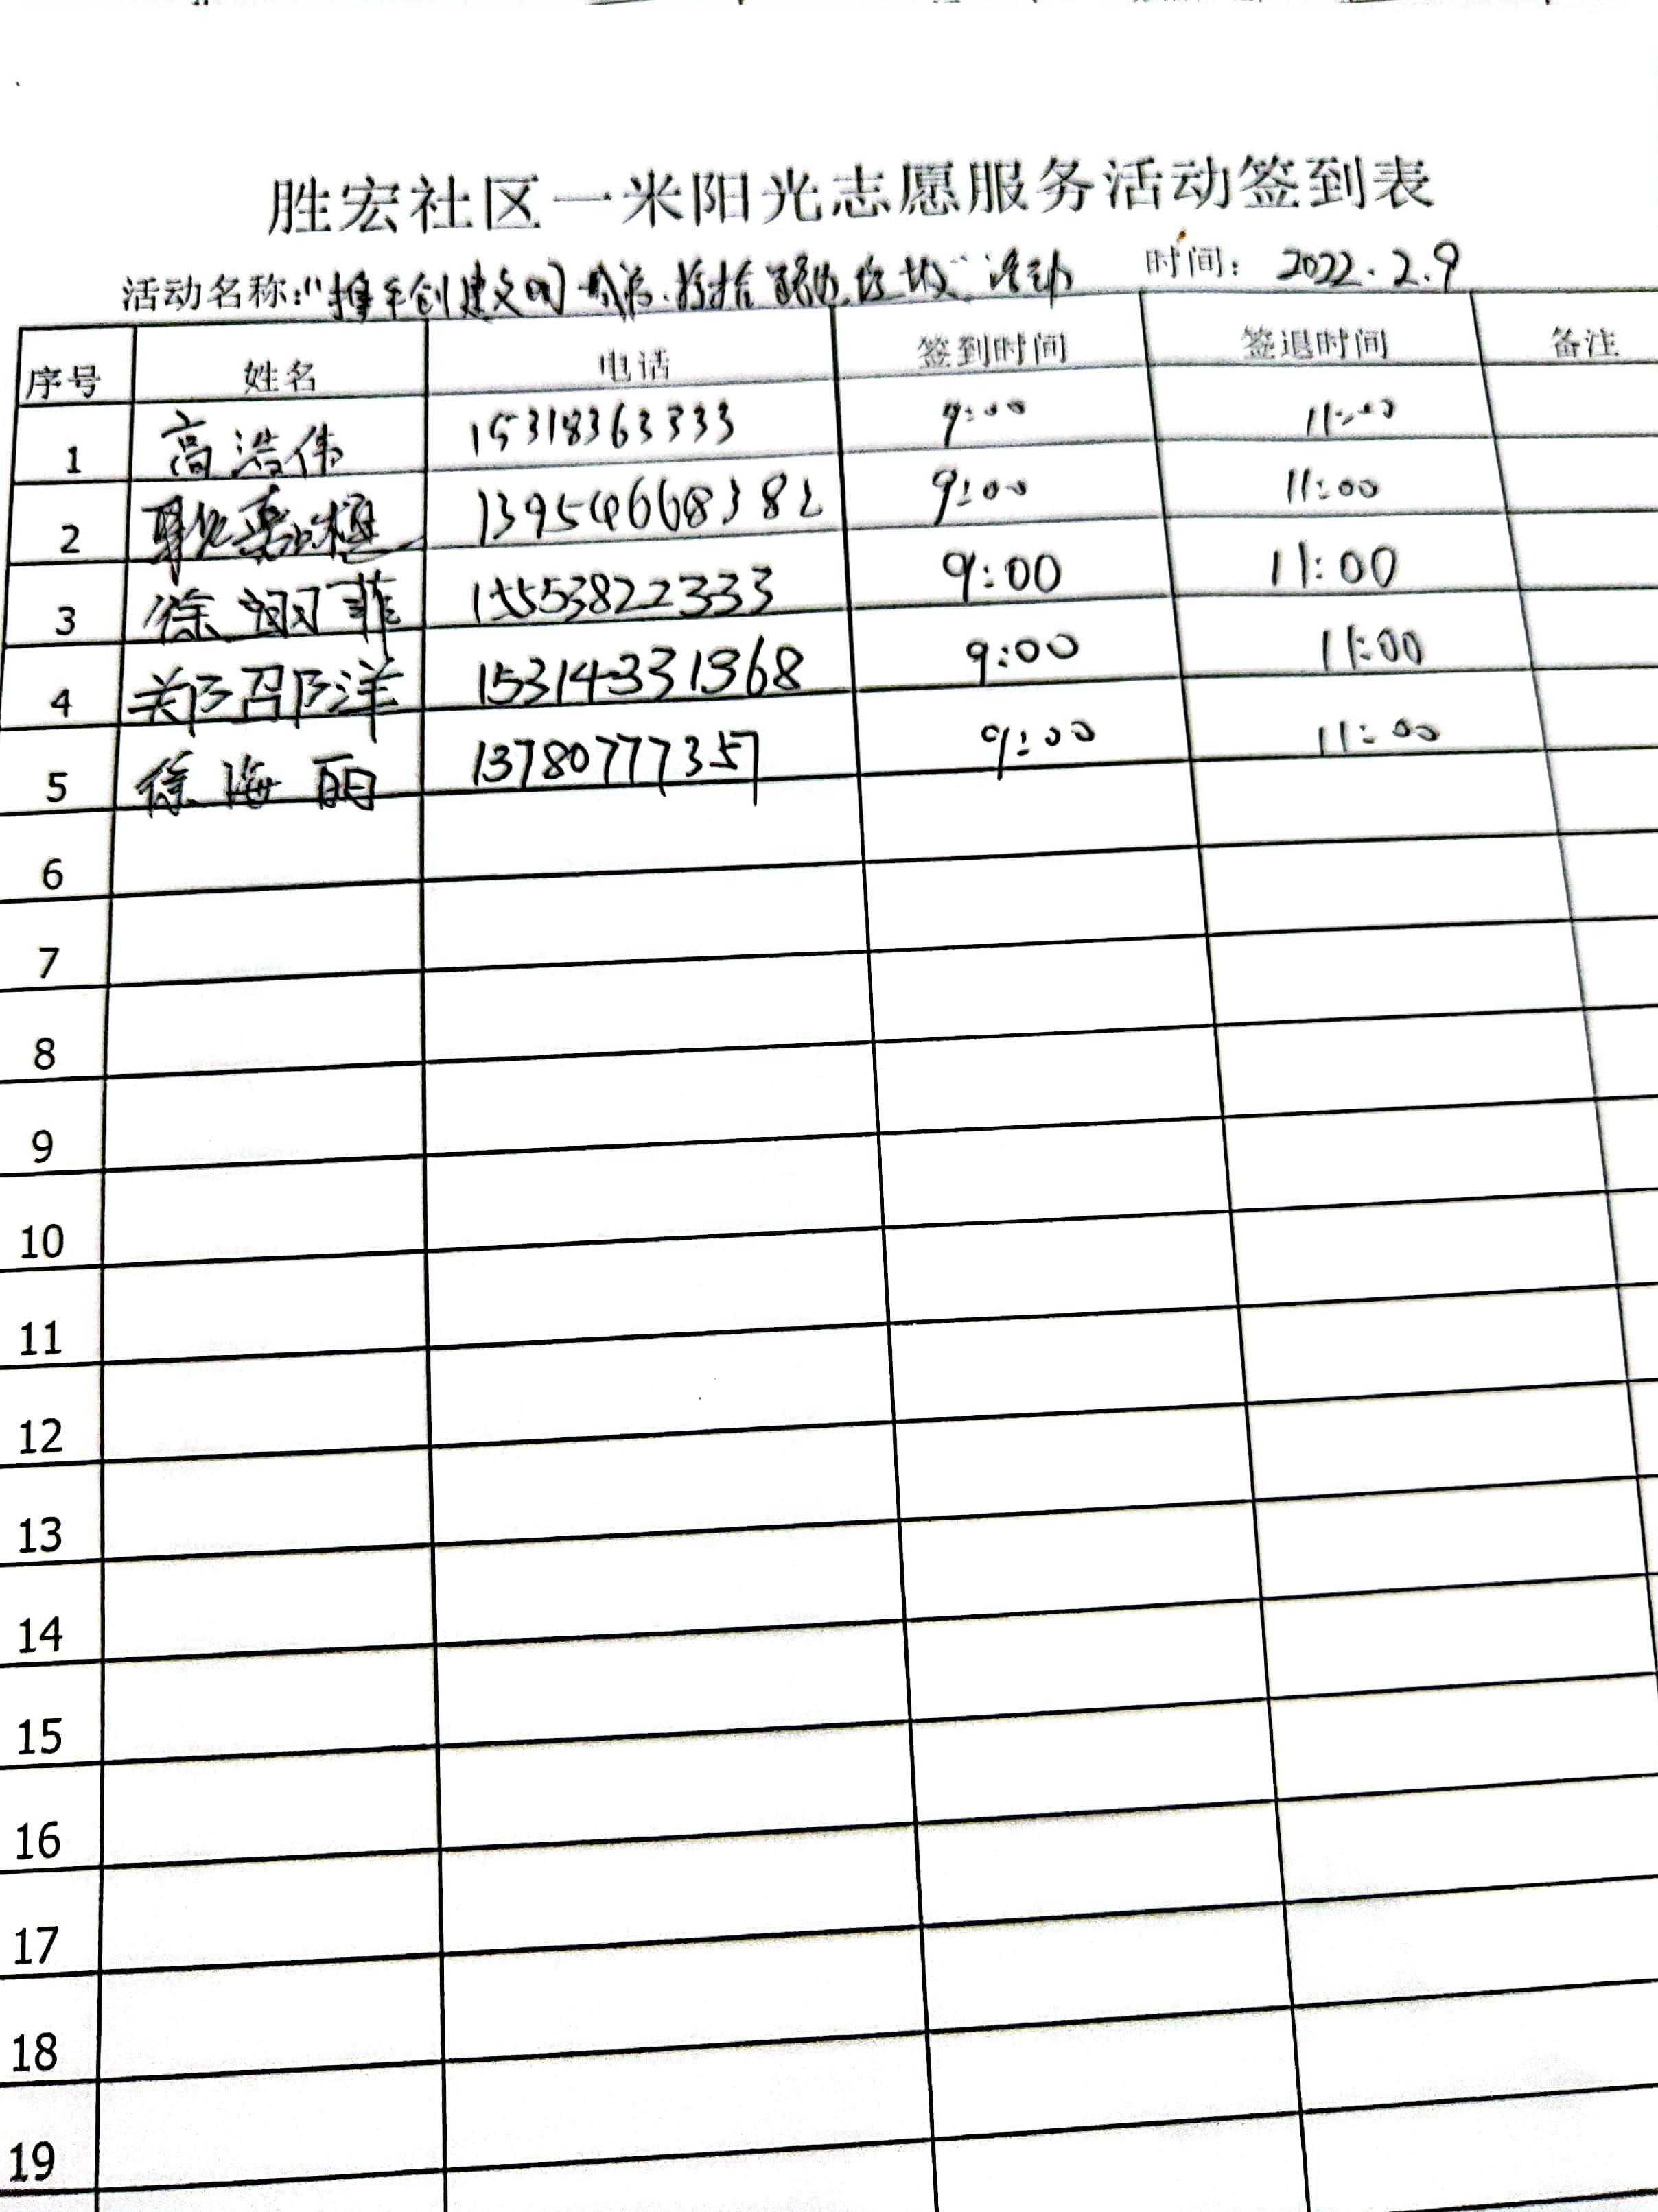 胜宏社区一米阳光志愿服务活动签到表
活动名称:“携手创建文明 活动 时间: 2022.2.9
序号 姓名 电话 签到时间 签退时间 备注
1 高浩伟 15318363333 9:00 11:00
2 139546668382 9:00 11:00
3 徐翊菲 15553822333 9:00 11:00
4 郑召阳洋 15314331368 9:00 11:00
5 徐海丽 13780777357 9:00 11:00
6
7
8
9
10
11
12
13
14
15
16
17
18
19